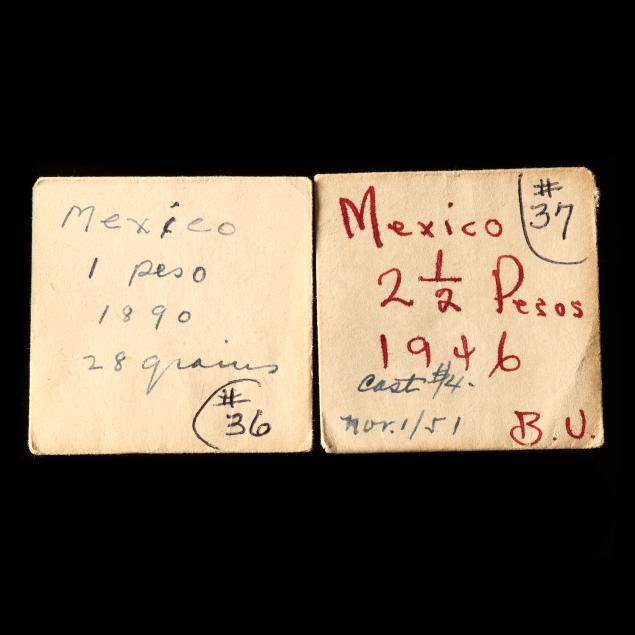 Mexico
1 peso
1890
28 grains
#
36
Mexico
#
37
2 1/2 Pesos
1946
Cost #4.
nov. 1/51
B.U.